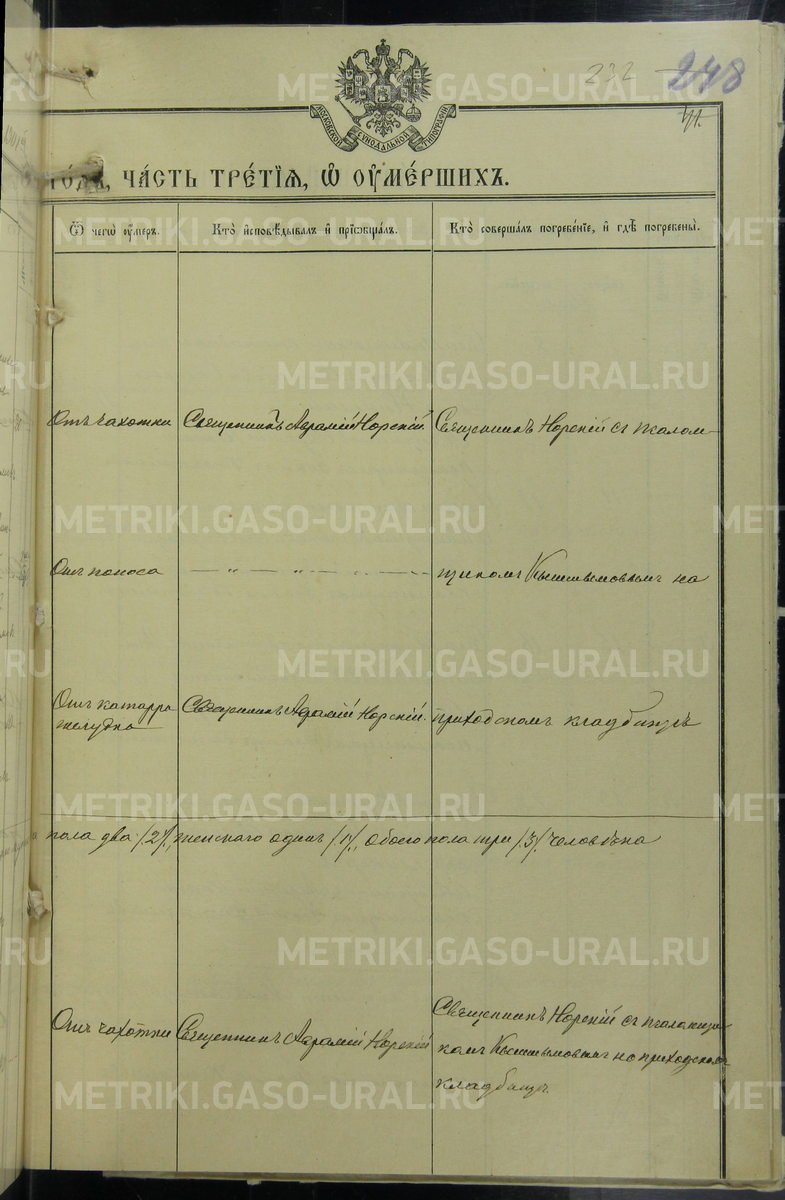 232 248
МОСКОВСКОЙ СѴНОДАЛЬНОЙ ТИПОГРАФІИ
го́дъ, ча́сть тре́тїѧ, ѡ҆ ᲂу҆ме́ршихъ.
Ѿ чегѡ̀ ᲂу҆́меръ. Кто̀ и҆сповѣ́дывалъ и҆ прїѡбща́лъ. Кто̀ соверша́лъ погребе́нїе, и҆ гдѣ̀ погребены̀.
Отъ чахотки Священникъ Аврамій Норскій Священникъ Норскій съ псалом-
Отъ поноса — „ — „ — щикомъ Кыштымовымъ на
Отъ катарра Священникъ Аврамій Норскій. приходскомъ кладбищѣ
желудка
пола два /2/, женскаго одинъ /1/, обоего пола три /3/ человѣка
Отъ чахотки Священникъ Аврамій Норскій Священникъ Норскій съ псаломщи-
комъ Кыштымовымъ на приходскомъ
кладбищѣ
METRIKI.GASO-URAL.RU